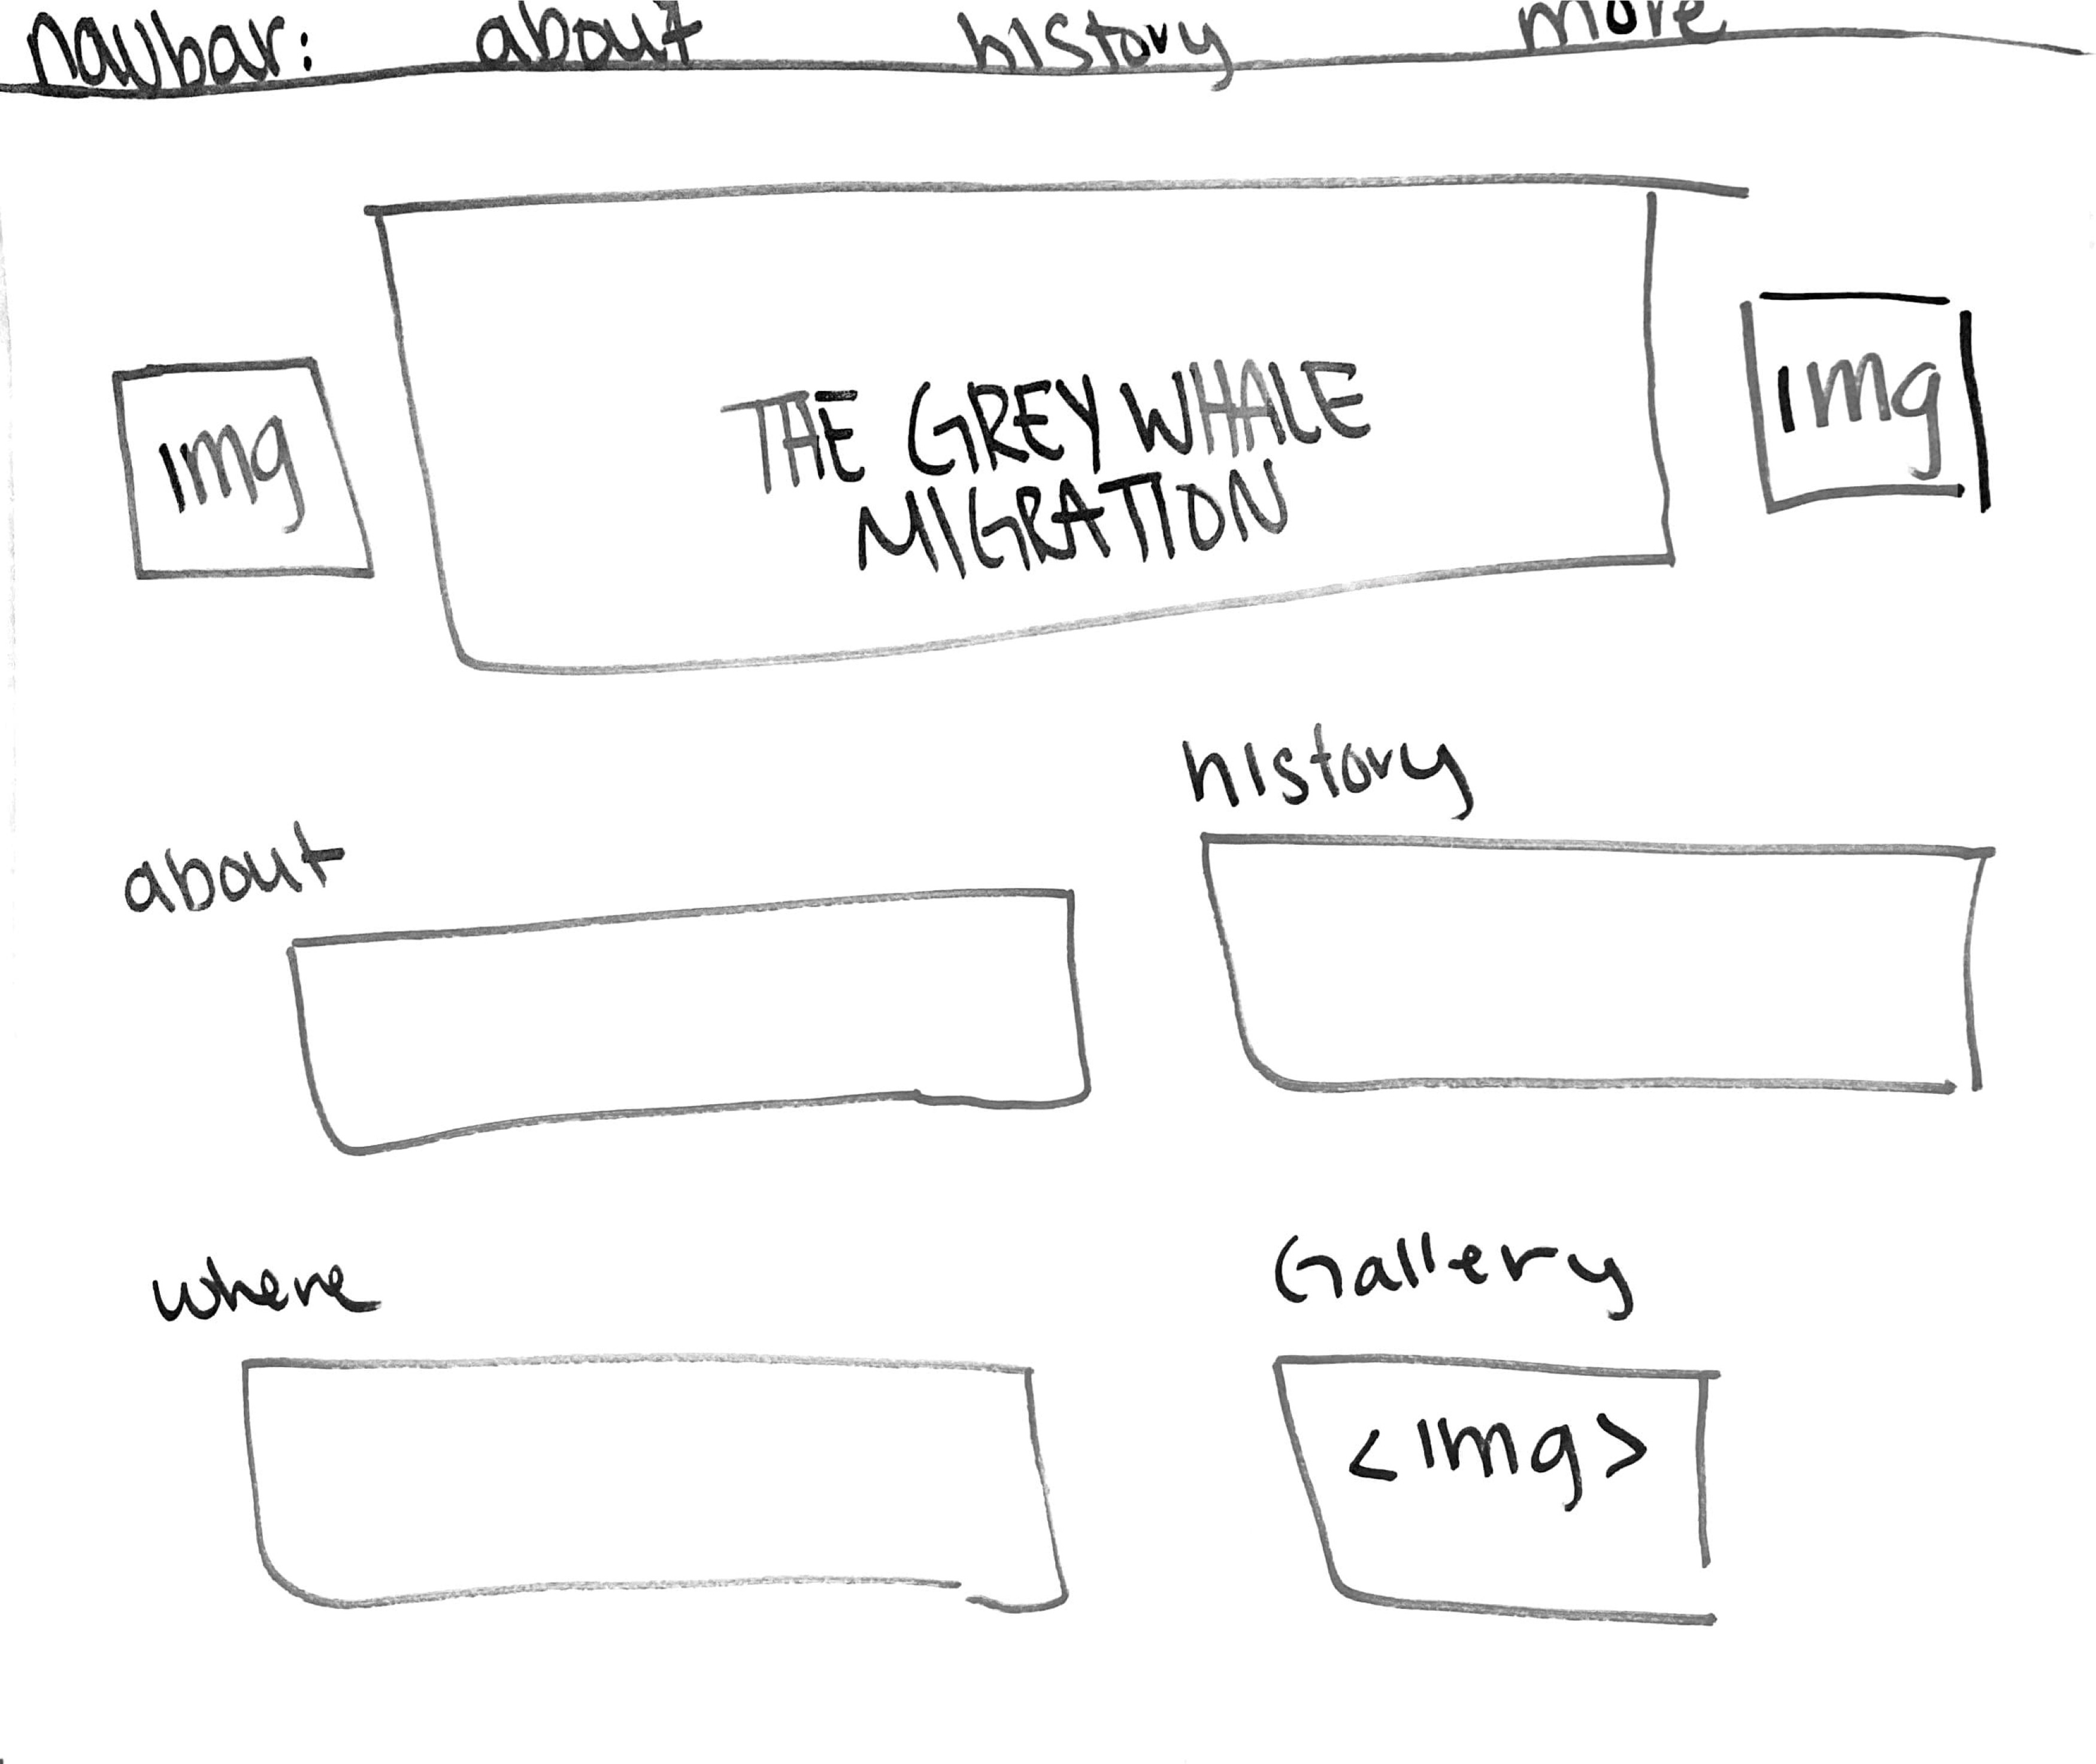 navbar: about history more
img
THE GREY WHALE
MIGRATION
img
history
about
where
Gallery
<img>